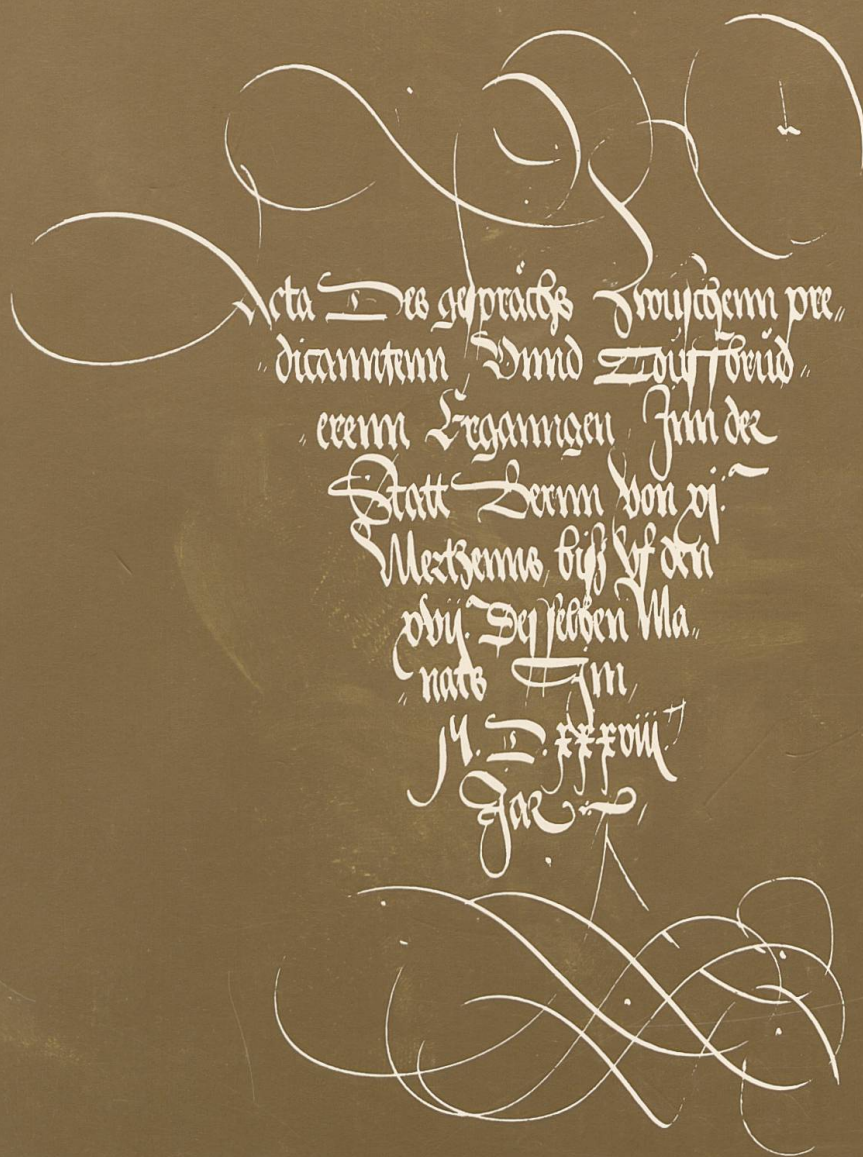 Acta Des gesprächs Zwüschenn pre„
„dicanntenn Vnnd Töuffbrüd„
„erenn Erganngen Inn der
Statt Bernn Von xj.
Mertzenns, biß vf den
xvij. Desselben Ma„
„nats Im,
M. D. xxxviij
Jar